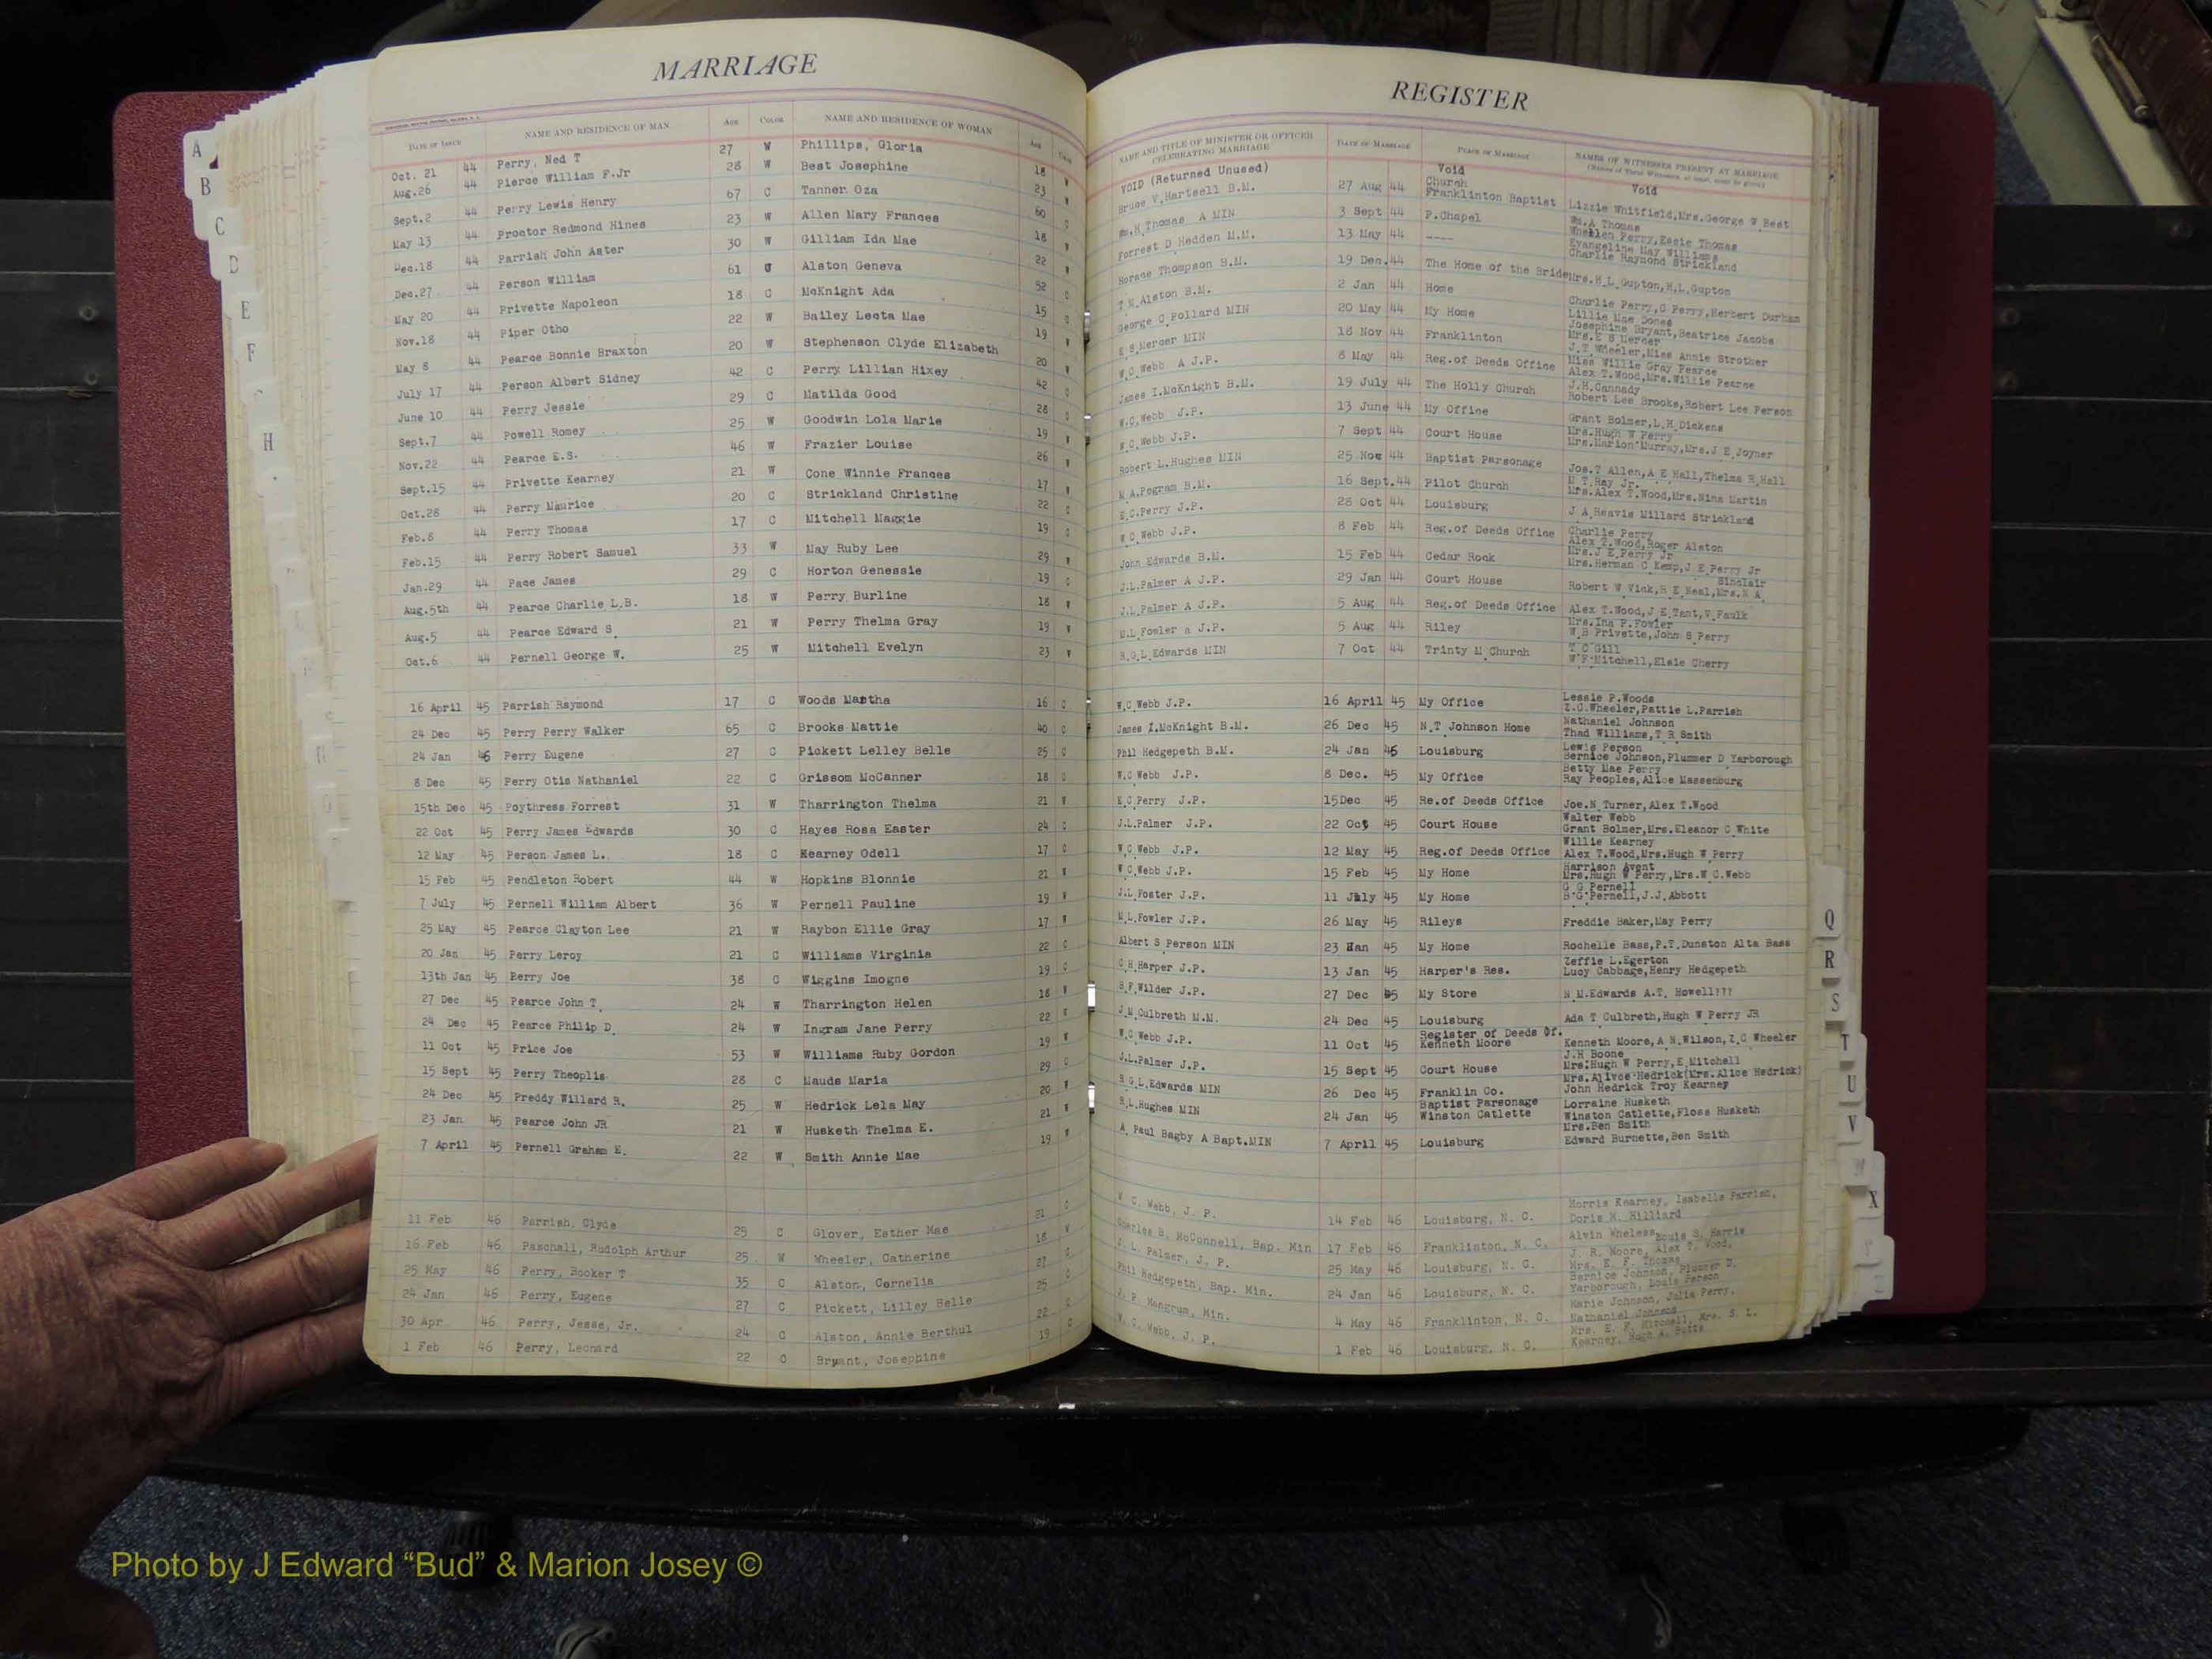 MARRIAGE
REGISTER
DATE OF ISSUE NAME AND RESIDENCE OF MAN AGE COLOR NAME AND RESIDENCE OF WOMAN AGE COLOR NAME AND TITLE OF MINISTER OR OFFICER CELEBRATING MARRIAGE DATE OF MARRIAGE PLACE OF MARRIAGE NAMES OF WITNESSES PRESENT AT MARRIAGE
Oct. 21 44 Perry, Ned T 27 W Phillips, Gloria 18 W VOID (Returned Unused) Void Void
Aug.26 44 Pierce William F.Jr 28 W Best Josephine 23 W Bruce V.Hartsell B.M. 27 Aug 44 Church Franklinton Baptist Lizzie Whitfield,Mrs.George W Best
Sept.2 44 Perry Lewis Henry 67 C Tanner Oza 60 C Wm.H Thomas A MIN 3 Sept 44 P.Chapel Wm.A Thomas Whellen Perry,Essie Thomas
May 13 44 Proctor Redmond Hines 23 W Allen Mary Frances 18 W Forrest D Hedden M.M. 13 May 44 ---- Evangeline May Williams Charlie Raymond Strickland
Dec.18 44 Parrish John Aster 30 W Gilliam Ida Mae 22 W Horace Thompson B.M. 19 Dec.44 The Home of the Bride Mrs.H L Gupton,H.L.Gupton
Dec.27 44 Person William 61 C Alston Geneva 52 C T M Alston B.M. 2 Jan 44 Home Charlie Perry,C Perry,Herbert Durham
May 20 44 Privette Napoleon 18 C McKnight Ada 15 C George C Pollard MIN 20 May 44 My Home Lillie Mae Jones Josephine Bryant,Beatrice Jacobs
Nov.18 44 Piper Otho 22 W Bailey Leota Mae 19 W E S Mercer MIN 18 Nov 44 Franklinton Mrs.E S Mercer J.T.Wheeler,Miss Annie Strother
May 8 44 Pearce Bonnie Braxton 20 W Stephenson Clyde Elizabeth 20 W.C.Webb A J.P. 8 May 44 Reg.of Deeds Office Miss Willie Gray Pearce Alex T.Wood,Mrs.Willie Pearce
July 17 44 Person Albert Sidney 42 C Perry Lillian Hixey 42 C James I.McKnight B.M. 19 July 44 The Holly Church J.H.Cannady Robert Lee Brooks,Robert Lee Person
June 10 44 Perry Jessie 29 C Matilda Good 28 C W.C.Webb J.P. 13 June 44 My Office Grant Bolmer,L.H.Dickens
Sept.7 44 Powell Romey 25 W Goodwin Lola Marie 19 W W C.Webb J.P. 7 Sept 44 Court House Mrs.Hugh W Perry Mrs.Marion Murray,Mrs.J E Joyner
Nov.22 44 Pearce E.S. 46 W Frazier Louise 26 W Robert L.Hughes MIN 25 Nov 44 Baptist Parsonage Jos.T Allen,A E Hall,Thelma R.Hall
Sept.15 44 Privette Kearney 21 W Cone Winnie Frances 17 W M A.Pegram B.M. 16 Sept.44 Pilot Church M T.Ray Jr. Mrs.Alex T.Wood,Mrs.Nina Martin
Oct.28 44 Perry Maurice 20 C Strickland Christine 22 C E.C.Perry J.P. 28 Oct 44 Louisburg J A Reavis Millard Strickland
Feb.8 44 Perry Thomas 17 C Mitchell Maggie 19 C W C.Webb J.P. 8 Feb 44 Reg.of Deeds Office Charlie Perry Alex T.Wood,Roger Alston
Feb.15 44 Perry Robert Samuel 33 W May Ruby Lee 29 W John Edwards B.M. 15 Feb 44 Cedar Rock Mrs.J E.Perry Jr Mrs.Herman C Kemp,J E Perry Jr
Jan.29 44 Pace James 29 C Horton Genessie 19 C J.L.Palmer A J.P. 29 Jan 44 Court House Sinclair Robert W Vick,R E Neal,Mrs.N A
Aug.5th 44 Pearce Charlie L.B. 18 W Perry Burline 18 W J.L.Palmer A J.P. 5 Aug 44 Reg.of Deeds Office Alex T.Wood,J E Tant,V Faulk
Aug.5 44 Pearce Edward S 21 W Perry Thelma Gray 19 W M.L Fowler a J.P. 5 Aug 44 Riley Mrs.Ina P.Fowler W B Privette,John S Perry
Oct.6 44 Pernell George W. 25 W Mitchell Evelyn 23 W R.G.L.Edwards MIN 7 Oct 44 Trinty M Church T C Gill W F Mitchell,Elsie Cherry
16 April 45 Parrish Raymond 17 C Woods Martha 16 C W.C Webb J.P. 16 April 45 My Office Lessie P.Woods Z.C.Wheeler,Pattie L.Parrish
24 Dec 45 Perry Perry Walker 65 C Brooks Mattie 40 C James I.McKnight B.M. 26 Dec 45 N.T Johnson Home Nathaniel Johnson Thad Williams,T R Smith
24 Jan 46 Perry Eugene 27 C Pickett Lelley Belle 25 C Phil Hedgepeth B.M. 24 Jan 46 Louisburg Lewis Person Bernice Johnson,Plummer D Yarborough
8 Dec 45 Perry Otis Nathaniel 22 C Grissom McCanner 18 C W.C Webb J.P. 8 Dec. 45 My Office Betty Mae Perry Ray Peoples,Alice Massenburg
15th Dec 45 Poythress Forrest 31 W Tharrington Thelma 21 W E C Perry J.P. 15Dec 45 Re.of Deeds Office Joe.N Turner,Alex T.Wood
22 Oct 45 Perry James Edwards 30 C Hayes Rosa Easter 24 C J.L.Palmer J.P. 22 Oct 45 Court House Walter Webb Grant Bolmer,Mrs.Eleanor C White
12 May 45 Person James L. 18 C Kearney Odell 17 C W C Webb J.P. 12 May 45 Reg.of Deeds Office Willie Kearney Alex T.Wood,Mrs.Hugh W Perry
15 Feb 45 Pendleton Robert 44 W Hopkins Blonnie 21 W W C.Webb J.P. 15 Feb 45 My Home Harrison Avent Mrs.Hugh W Perry,Mrs.W C.Webb
7 July 45 Pernell William Albert 36 W Pernell Pauline 19 W J.L Foster J.P. 11 July 45 My Home G G Pernell B G Pernell,J.J.Abbott
25 May 45 Pearce Clayton Lee 21 W Raybon Ellie Gray 17 W M L.Fowler J.P. 26 May 45 Rileys Freddie Baker,May Perry
20 Jan 45 Perry Leroy 21 C Williams Virginia 22 C Albert S Person MIN 23 Han 45 My Home Rochelle Bass,P.T.Dunston Alta Bass
13th Jan 45 Berry Joe 38 C Wiggins Imogne 19 C C H Harper J.P. 13 Jan 45 Harper's Res. Zeffie L.Egerton Lucy Cabbage,Henry Hedgepeth
27 Dec 45 Pearce John T 24 W Tharrington Helen 18 W B.F.Wilder J.P. 27 Dec 45 My Store N M.Edwards A.T. Howell???
24 Dec 45 Pearce Philip D. 24 W Ingram Jane Perry 22 W J M Culbreth M.M. 24 Dec 45 Louisburg Ada T Culbreth,Hugh W Perry JR
11 Oct 45 Price Joe 53 W Williams Ruby Gordon 19 W W.C Webb J.P. 11 Oct 45 Register of Deeds Of. Kenneth Moore Kenneth Moore,A N Wilson,Z C Wheeler
15 Sept 45 Perry Theoplis 28 C Mauds Maria 29 C J.L.Palmer J.P. 15 Sept 45 Court House J.H Boone Mrs.Hugh W Perry,E Mitchell
24 Dec 45 Preddy Willard R. 25 W Hedrick Lela May 20 W R G L.Edwards MIN 26 Dec 45 Franklin Co. Mrs.Alivce Hedrick(Mrs.Alice Hedrick) John Hedrick Troy Kearney
23 Jan 45 Pearce John JR 21 W Husketh Thelma E. 21 W R L.Hughes MIN 24 Jan 45 Baptist Parsonage Winston Catlette Lorraine Husketh Winston Catlette,Floss Husketh
7 April 45 Pernell Graham E. 22 W Smith Annie Mae 19 W A. Paul Bagby A Bapt.MIN 7 April 45 Louisburg Mrs.Ben Smith Edward Burnette,Ben Smith
11 Feb 46 Parrish, Clyde 25 C Glover, Esther Mae 21 C W. C. Webb, J. P. 14 Feb 46 Louisburg, N. C. Morris Kearney, Isabelle Parrish, Doris M. Hilliard
16 Feb 46 Paschall, Rudolph Arthur 25 W Wheeler, Catherine 18 W Charles B. McConnell, Bap. Min 17 Feb 46 Franklinton, N. C. Alvin Wheless, Louis S. Harris
25 May 46 Perry, Booker T 35 C Alston, Cornelia 27 C J. L. Palmer, J. P. 25 May 46 Louisburg, N. C. J. R. Moore, Alex T. Wood, Mrs. E. F. Thomas
24 Jan 46 Perry, Eugene 27 C Pickett, Lilley Belle 25 C Phil Hedgepeth, Bap. Min. 24 Jan 46 Louisburg, N. C. Bernice Johnson, Plummer D. Yarborough, Louis Person
30 Apr 46 Perry, Jesse, Jr. 24 C Alston, Annie Berthul 22 C J. P. Mangrum, Min. 4 May 46 Franklinton, N. C. Marie Johnson, Julia Perry, Nathaniel Johnson
1 Feb 46 Perry, Leonard 22 C Bryant, Josephine 19 C W. C. Webb, J. P. 1 Feb 46 Louisburg, N. C. Mrs. E. F. Mitchell, Mrs. S. L. Kearney, Hugh A. Potts
A
B
C
D
E
F
H
Q
R
S
T
U
V
X
Y
Z
Photo by J Edward “Bud” & Marion Josey ©